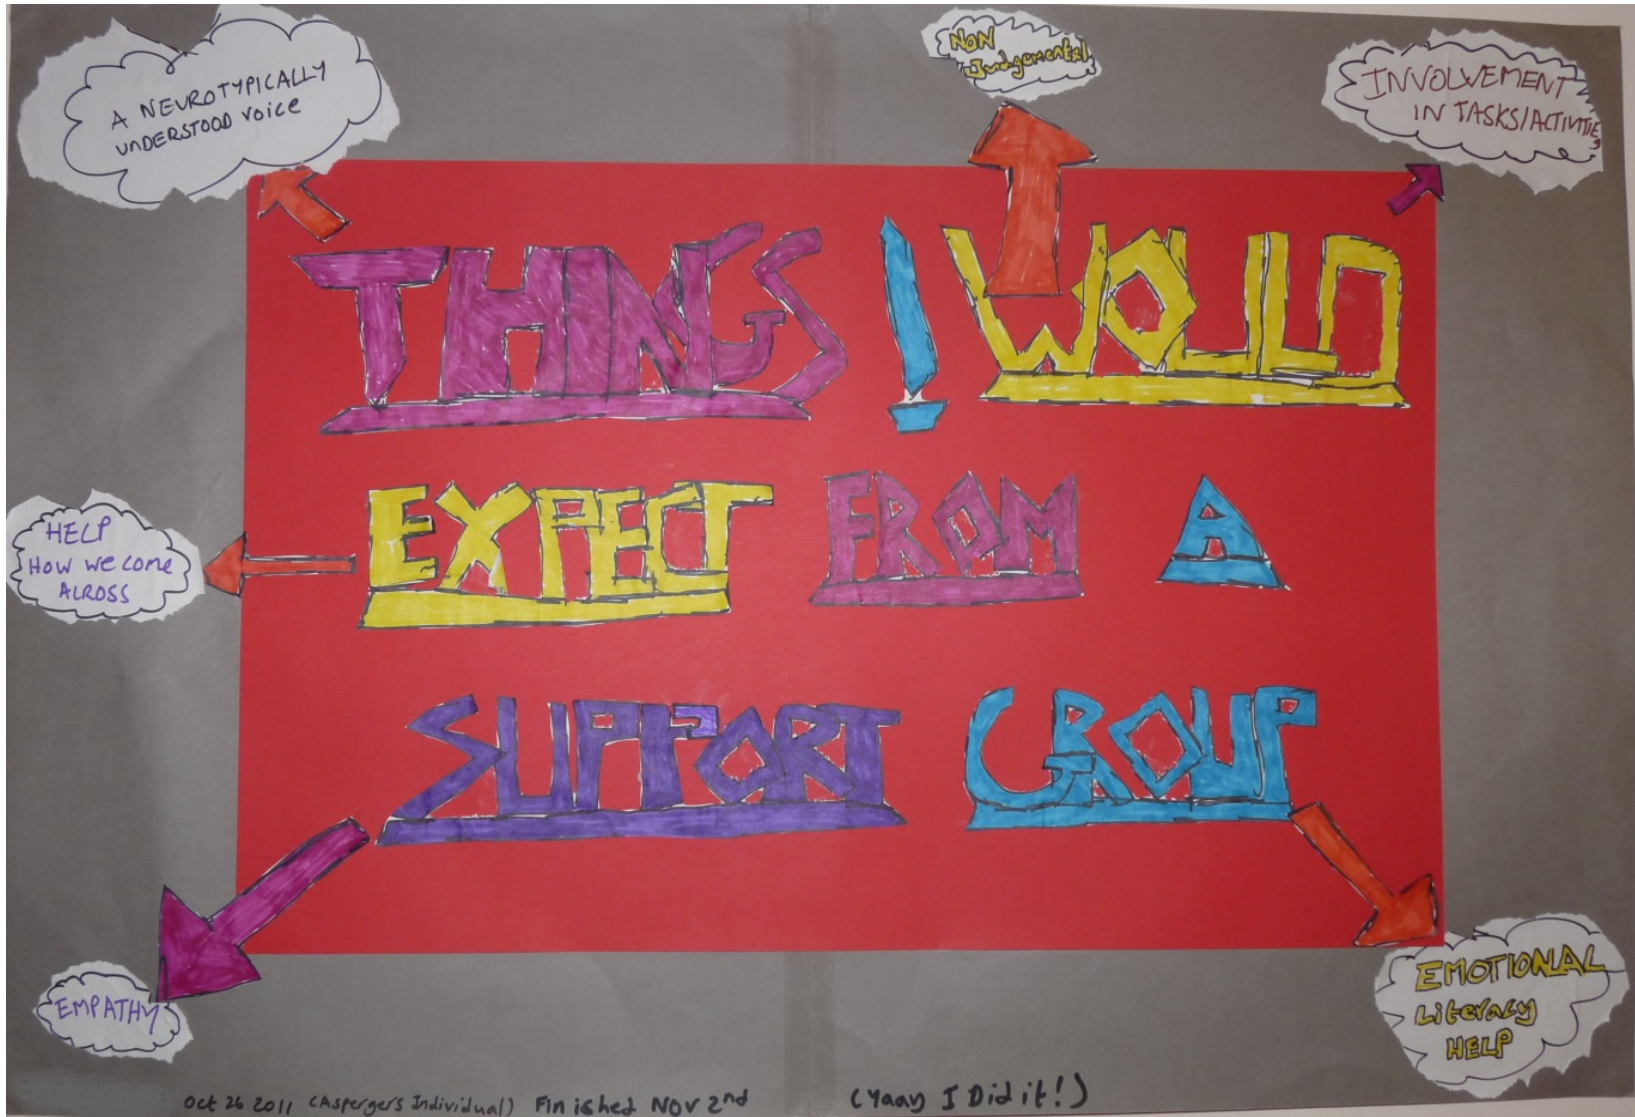 A NEUROTYPICALLY
UNDERSTOOD VOICE
NON
Judgemental
INVOLVEMENT
IN TASKS/ACTIVITIES
THINGS I WOULD
EXPECT FROM A
SUPPORT GROUP
HELP
HOW WE COME
ACROSS
EMPATHY
EMOTIONAL
Literacy
HELP
Oct 26 2011 (Aspergers Individual) Finished Nov 2nd (Yaay I Did it!)